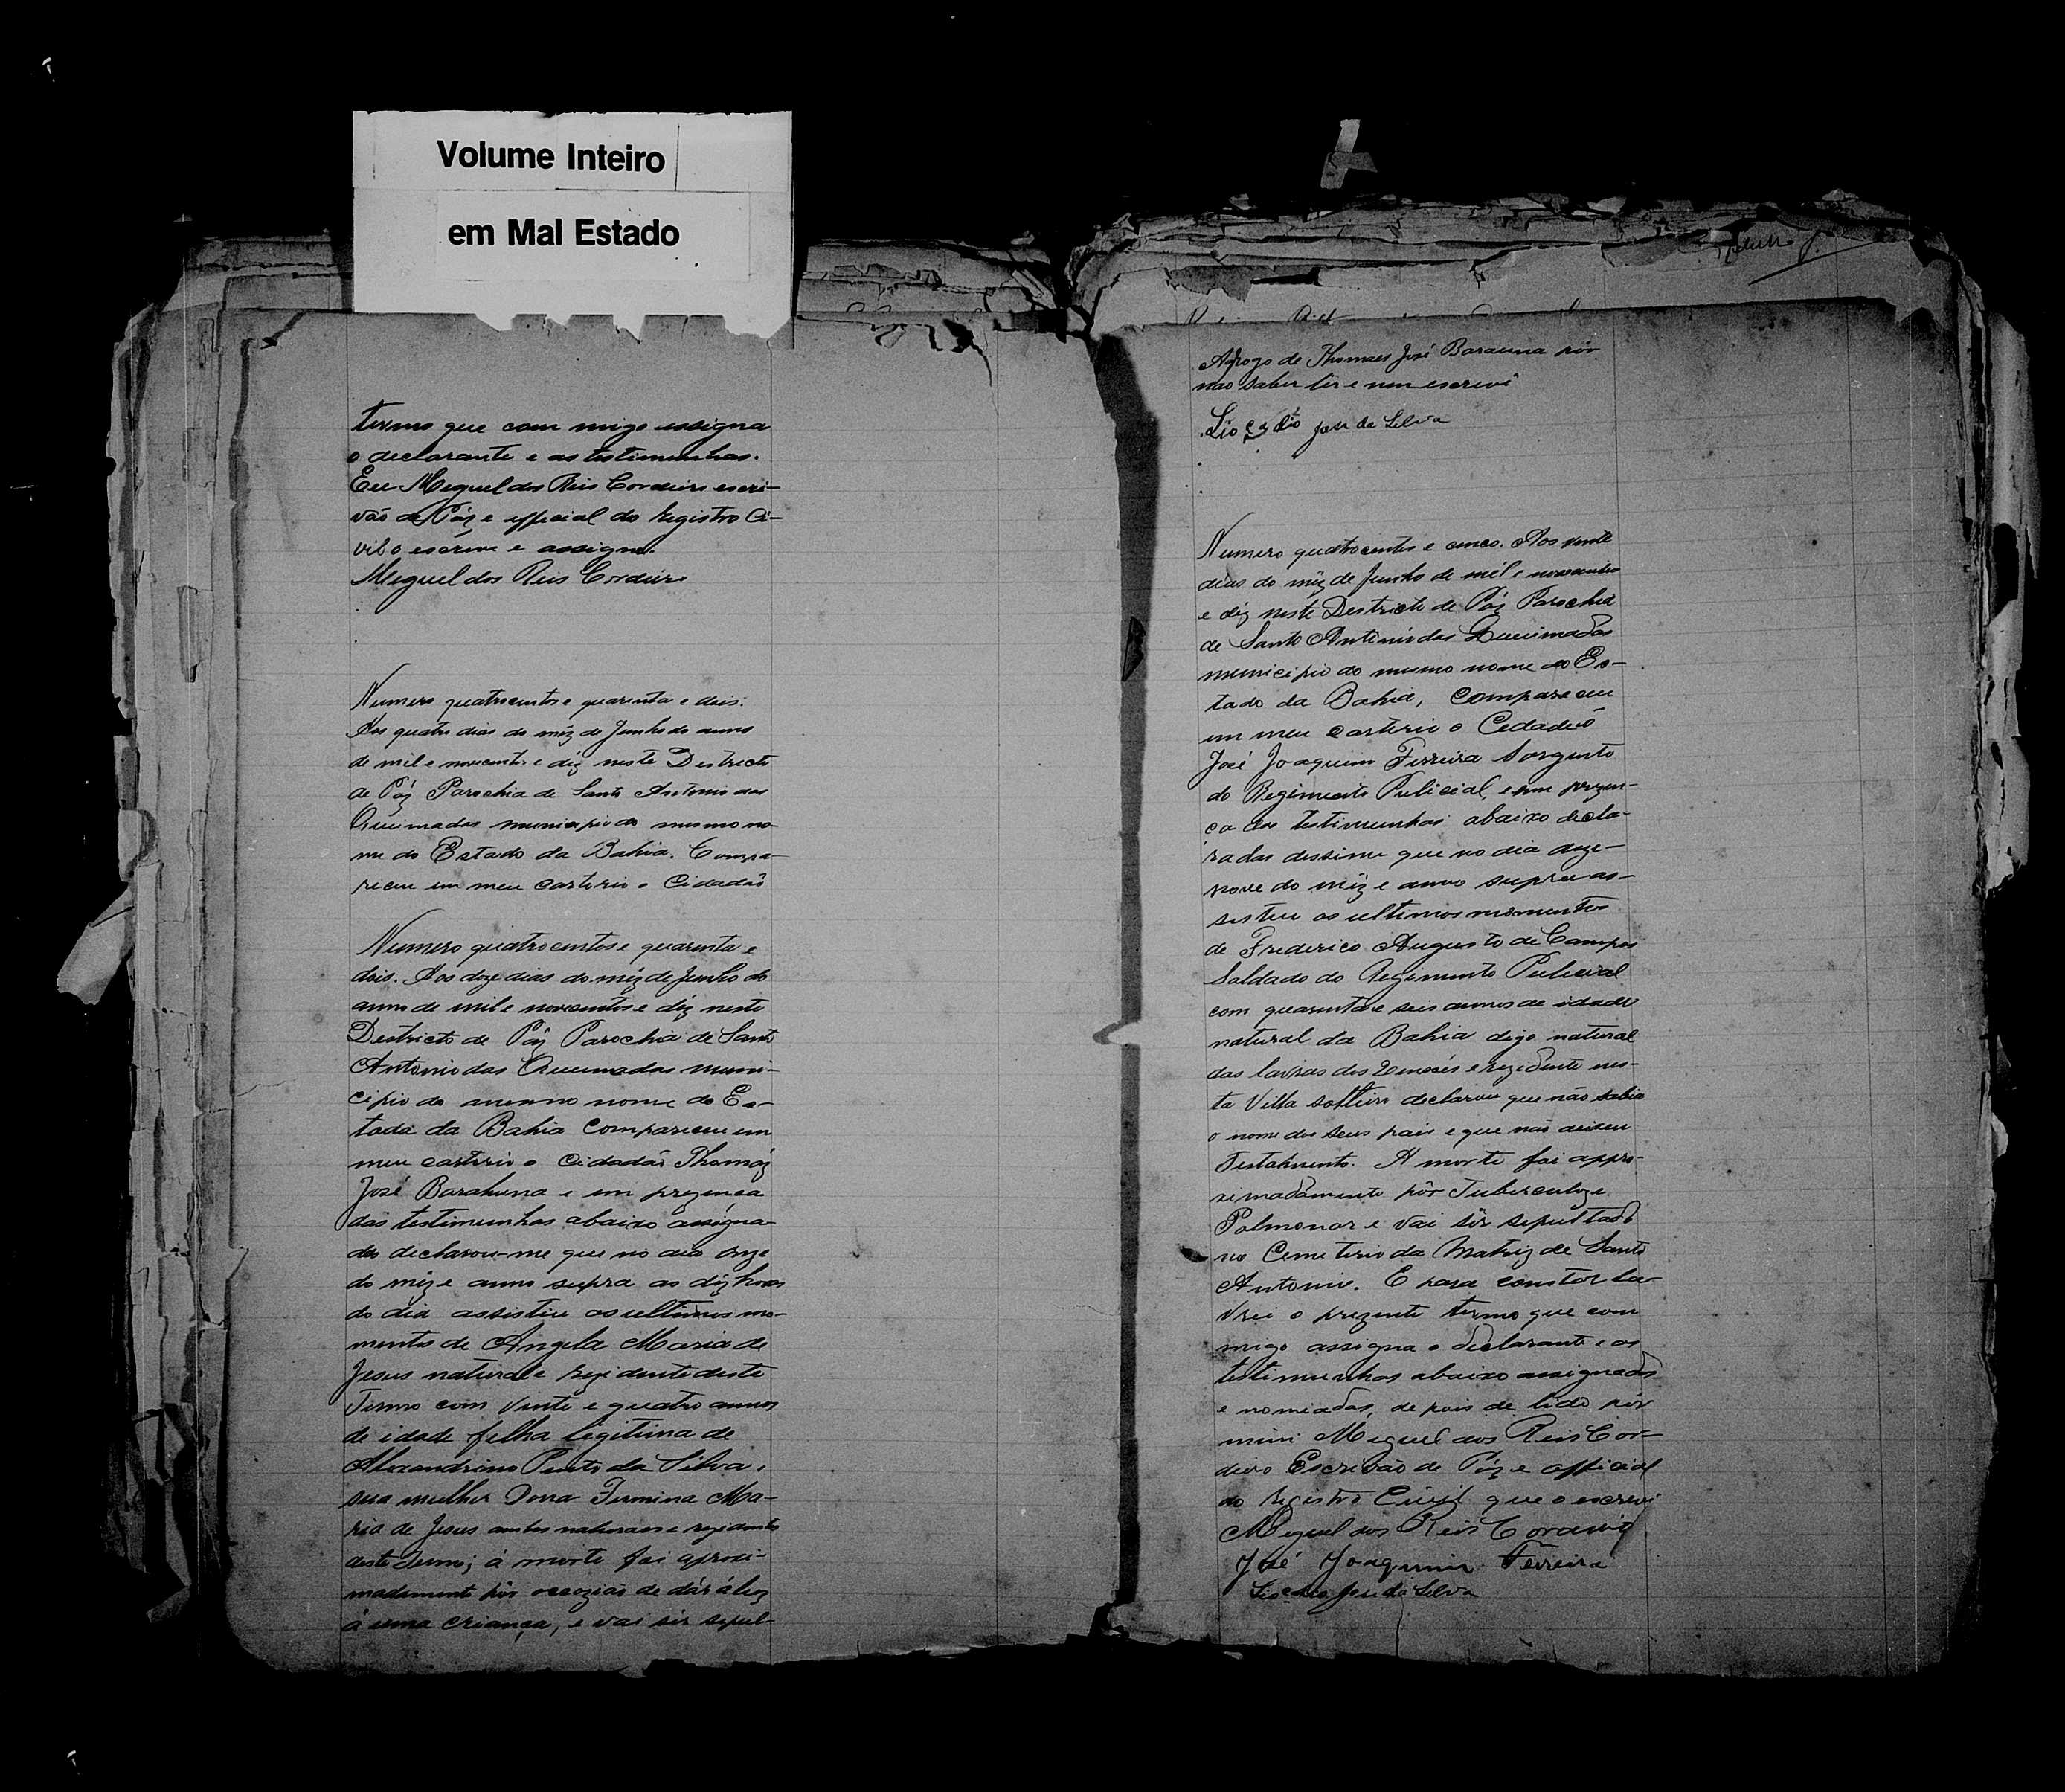 Volume Inteiro
em Mal Estado
termo que com migo assigna
o declarante e as testimunhas.
Eu Meguel dos Reis Cordeiro escri-
vão de Páz e official do Registro Ci-
vil o escrevi e assigno.
Meguel dos Reis Cordeiro
Numero quatrocentos e quarenta e dois.
Aos quatro dias do mêz de Junho do anno
de mil e novecentos e déz neste Destricto
de Páz Parochia de Santo Antonio das
Queimadas municipio do mesmo no-
me do Estado da Bahia. Compa-
receu em meu cartorio o Cidadão
Numero quatrocentos e quarenta e
dois. Aos doze dias do mêz de Junho do
anno de mil e novecentos e déz neste
Destricto de Páz Parochia de Santo
Antonio das Queimadas muni-
cipio do mesmo nome do Es-
tado da Bahia Compareceu em
meu cartorio o Cidadão Thomáz
José Barahuna e em prezença
das testimunhas abaixo assigna-
das declarou-me que no dia onze
do mêz e anno supra as déz horas
do dia assistiu os ultimos mo-
mentos de Angela Maria de
Jesus natural e rezidente deste
Termo com vinte e quatro annos
de idade felha legitima de
Alexandrino Pinto da Silva e
sua mulher Dona Firmina Ma-
ria de Jesus ambos naturaes e rezidentes
deste Termo; á morte foi aproxi-
madamente pôr occazião de dár á luz
á uma criança, e vai sêr sepul-
Arogo de Thomaes José Barauna pôr
não saber lêr e nem escrevê
José da Silva
Numero quatrocentos e cinco. Aos vinte
dias do mêz de Junho de mil e novecentos
e déz neste Destricto de Páz Parochia
de Santo Antonio das Queimadas
municipio do mesmo nome do Es-
tado da Bahia, Compareceu
em meu cartorio o Cedadão
José Joaquim Ferreira Sargento
do Regimento Pulicial, e em prezen-
ça das testimunhas abaixo decla-
radas dessime que no dia deze-
nove do mêz e anno supra as-
sisteu os ultimos momentos
de Frederico Augusto de Campos
Soldado do Regimento Pulicial
com quarenta e seis annos de idade
natural da Bahia digo natural
das lavras dos e rezidente nes-
ta Villa solteiro declarou que não sabia
o nome dos seus pais e que não deixou
Testahmento. A morte foi appro-
ximadamente pôr Tuberculoze
Polmonar e vai sêr sepultado
no Cemeterio da Matriz de Santo
Antonio. E para constar la-
vrei o prezente termo que com
migo assigna o declarante e as
testimunhas abaixo assignados
e nomiadas, depois de lido pôr
mim Meguel dos Reis Cor-
deiro Escrevão de Páz e official
do Registro Civil que o escrevi
Meguel dos Reis Cordeiro
José Joaquim Ferreira
José da Silva